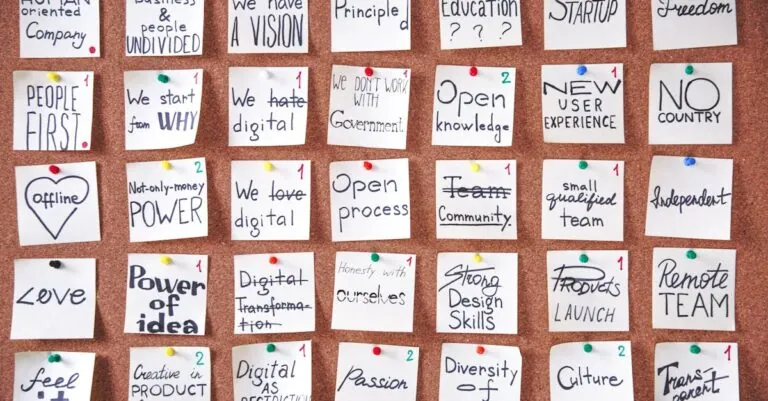 oriented
Company
&
people
UNDIVIDED
We have
A VISION
Education
? ? ?
STARTUP
Freedom
1
PEOPLE
FIRST
1
We start
from WHY
1
We hate
digital
1
We DON'T WORK
WITH
Government
2
Open
knowledge
1
NEW
USER
EXPERIENCE
NO
COUNTRY
offline
2
Not-only-money
POWER
1
We love
digital
Open
process
1
Team
Community
1
small
qualified
team
Independent
Love
1
Power
of
idea
1
Digital
Transforma-
tion
1
Honesty with
ourselves
Strong
Design
Skills
1
Products
LAUNCH
Remote
TEAM
feel
it
2
Creative in
PRODUCT
1
Digital
AS
2
Passion
Diversity
of
2
Culture
1
Trans-